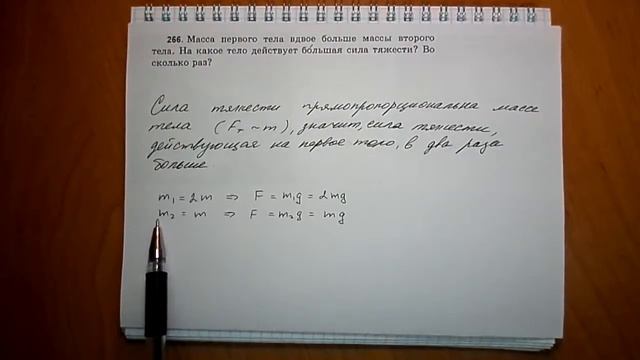 266. Масса первого тела вдвое больше массы второго
тела. На какое тело действует бóльшая сила тяжести? Во
сколько раз?
Сила тяжести прямопропорциональна массе
тела (Fт ~ m), значит, сила тяжести,
действующая на первое тело, в два раза
больше
m₁ = 2m ⇒ F = m₁g = 2mg
m₂ = m ⇒ F = m₂g = mg